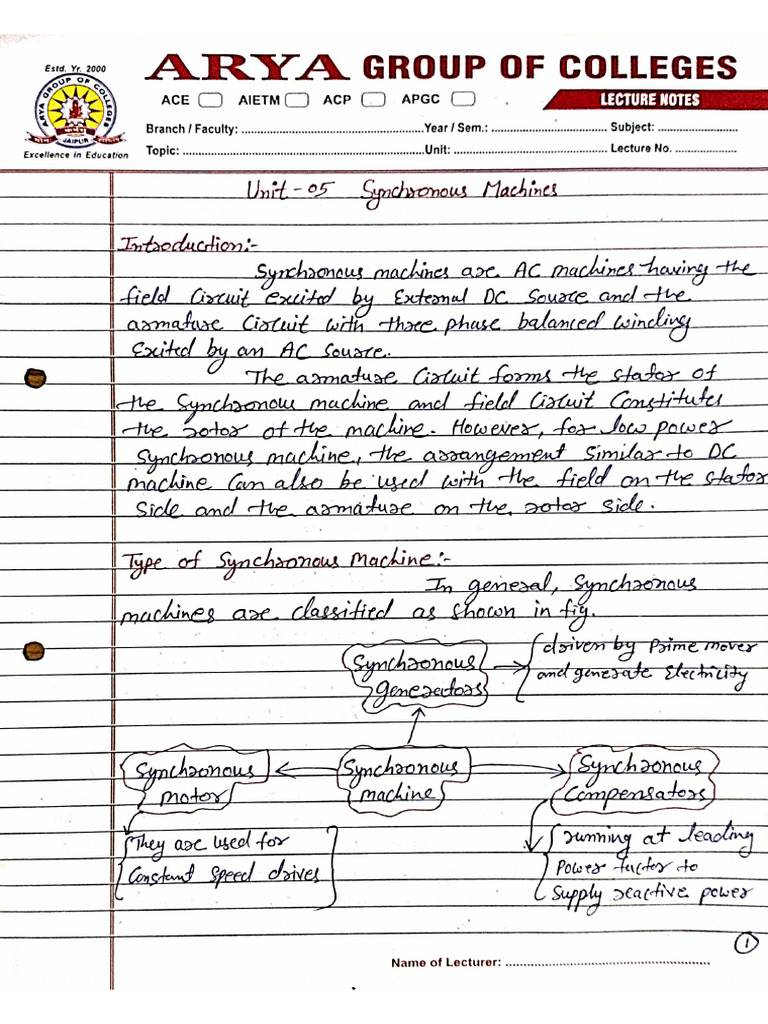 Estd. Yr. 2000
ARYA GROUP OF COLLEGES
ARYA GROUP OF COLLEGES
JAIPUR
Excellence in Education
ACE AIETM ACP APGC LECTURE NOTES
Branch / Faculty: ........................ Year / Sem.: ........................ Subject: ........................
Topic: ........................ Unit: ........................ Lecture No. ........................
Unit-05 Synchronous Machines
Introduction:-
Synchronous machines are AC machines having the
field Circuit excited by External DC Source and the
armature Circuit with three phase balanced winding
Exited by an AC source.
The armature Circuit forms the stator of
the Synchronous machine and field Circuit Constitutes
the rotor of the machine. However, for low power
Synchronous machine, the arrangement Similar to DC
machine Can also be used with the field on the stator
Side and the armature on the rotor side.
Type of Synchronous Machine:-
In general, Synchronous
machines are classified as shown in fig.
Synchronous
generators
driven by Prime mover
and generate Electricity
Synchronous
motor
Synchronous
machine
Synchronous
Compensators
They are used for
Constant Speed drives
running at leading
Power factor to
Supply reactive power
1
Name of Lecturer: ........................